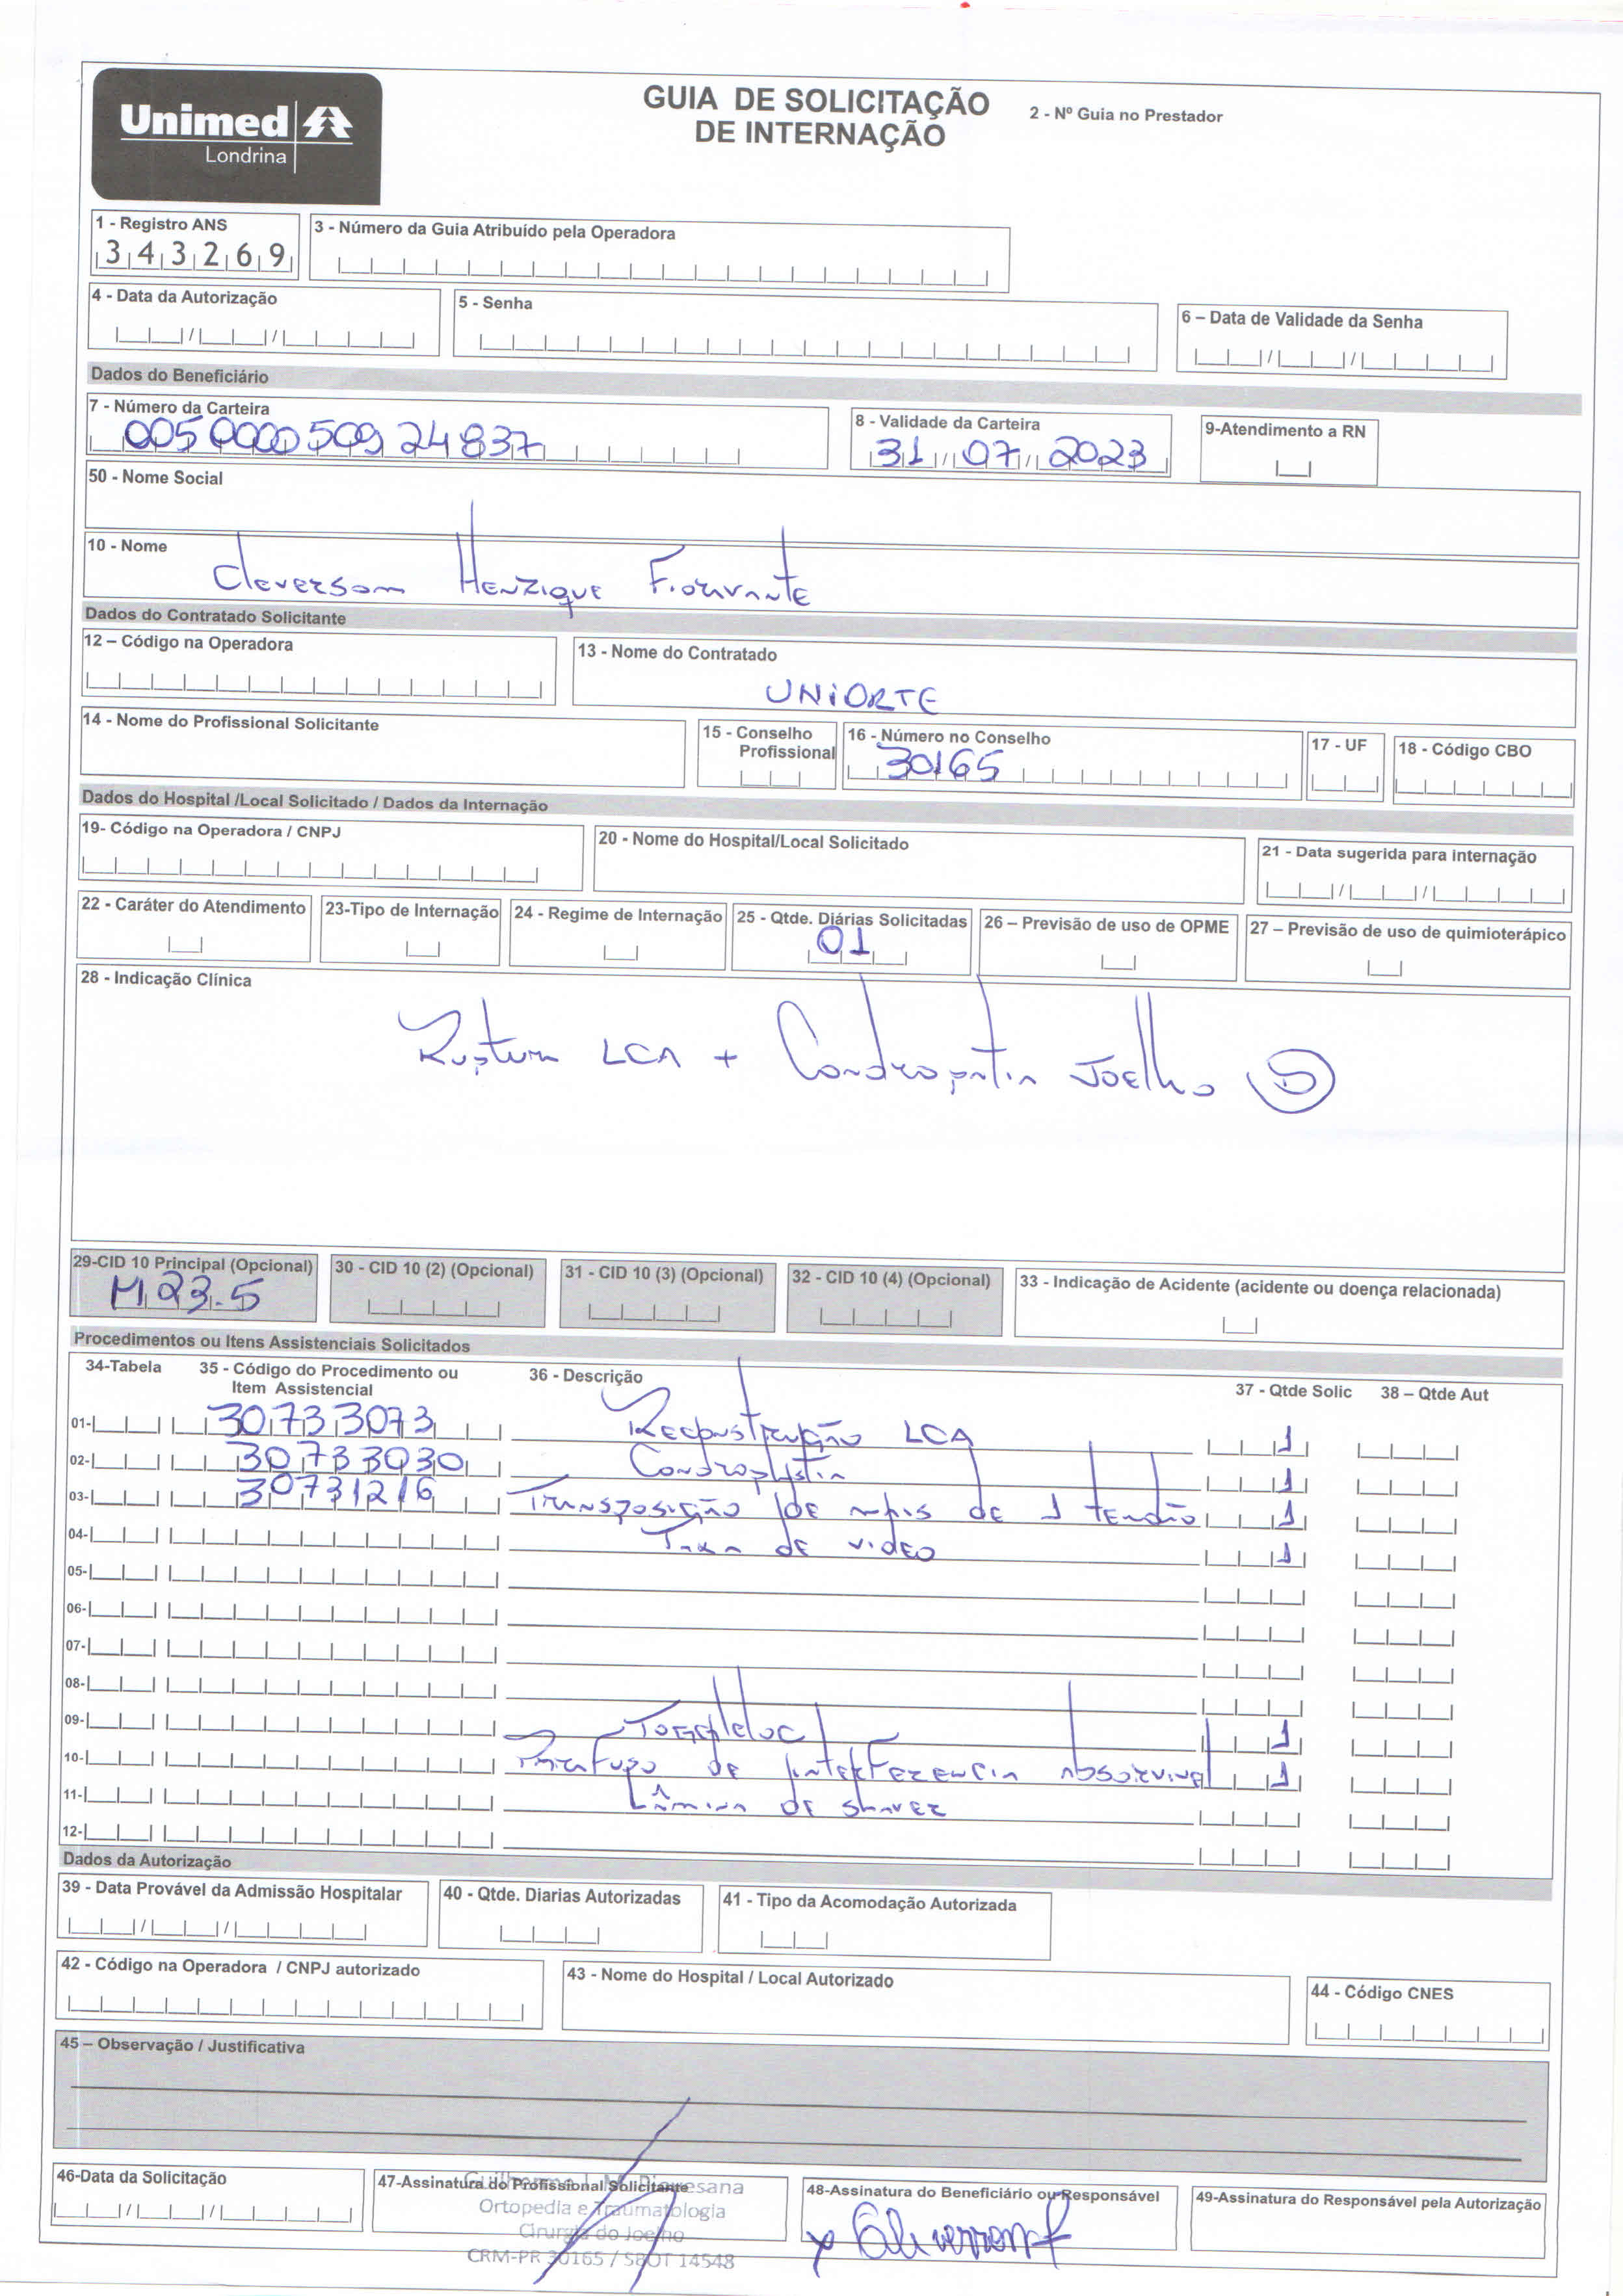 Unimed
Londrina
GUIA DE SOLICITAÇÃO
DE INTERNAÇÃO
2 - Nº Guia no Prestador
1 - Registro ANS
343269
3 - Número da Guia Atribuído pela Operadora
4 - Data da Autorização
5 - Senha
6 – Data de Validade da Senha
Dados do Beneficiário
7 - Número da Carteira
0050000509 24837
8 - Validade da Carteira
31 07 2023
9-Atendimento a RN
50 - Nome Social
10 - Nome
Cleverson Henrique Fioravante
Dados do Contratado Solicitante
12 – Código na Operadora
13 - Nome do Contratado
UNIORTE
14 - Nome do Profissional Solicitante
15 - Conselho
Profissional
16 - Número no Conselho
30165
17 - UF
18 - Código CBO
Dados do Hospital /Local Solicitado / Dados da Internação
19- Código na Operadora / CNPJ
20 - Nome do Hospital/Local Solicitado
21 - Data sugerida para internação
22 - Caráter do Atendimento
23-Tipo de Internação
24 - Regime de Internação
25 - Qtde. Diárias Solicitadas
01
26 – Previsão de uso de OPME
27 – Previsão de uso de quimioterápico
28 - Indicação Clínica
Ruptura LCA + Condropatia Joelho D
29-CID 10 Principal (Opcional)
M23.5
30 - CID 10 (2) (Opcional)
31 - CID 10 (3) (Opcional)
32 - CID 10 (4) (Opcional)
33 - Indicação de Acidente (acidente ou doença relacionada)
Procedimentos ou Itens Assistenciais Solicitados
34-Tabela
35 - Código do Procedimento ou
Item Assistencial
36 - Descrição
37 - Qtde Solic
38 – Qtde Aut
01- 30733073 Reconstrução LCA 1
02- 30733030 Condroplastia 1
03- 30731216 Transposição de mais de 1 tendão 1
04- Taxa de video 1
05-
06-
07-
08-
09- 1
10- Parafuso de interferencia absorvivel 1
11- Lâmina de shaver
12-
Dados da Autorização
39 - Data Provável da Admissão Hospitalar
40 - Qtde. Diarias Autorizadas
41 - Tipo da Acomodação Autorizada
42 - Código na Operadora / CNPJ autorizado
43 - Nome do Hospital / Local Autorizado
44 - Código CNES
45 – Observação / Justificativa
46-Data da Solicitação
47-Assinatura do Profissional Solicitante
Ortopedia e Traumatologia
Cirurgia do Joelho
CRM-PR 30165 / SBOT 14548
48-Assinatura do Beneficiário ou Responsável
49-Assinatura do Responsável pela Autorização